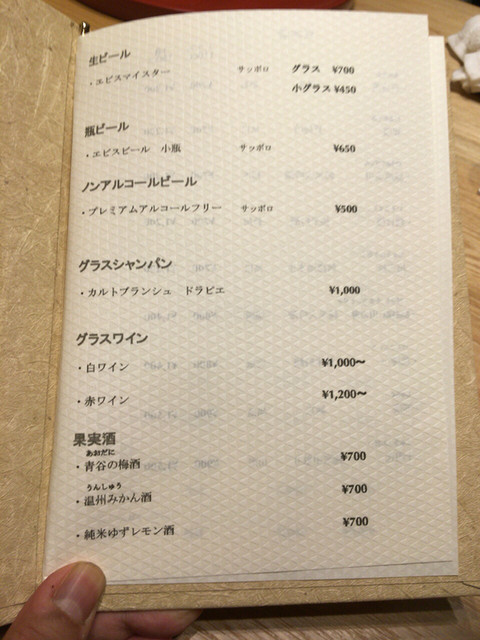 生ビール
・エビスマイスター サッポロ グラス ¥700
小グラス ¥450
瓶ビール
・エビスビール 小瓶 サッポロ ¥650
ノンアルコールビール
・プレミアムアルコールフリー サッポロ ¥500
グラスシャンパン
・カルトブランシュ ドラピエ ¥1,000
グラスワイン
・白ワイン ¥1,000〜
・赤ワイン ¥1,200〜
果実酒
あおだに
・青谷の梅酒 ¥700
うんしゅう
・温州みかん酒 ¥700
・純米ゆずレモン酒 ¥700